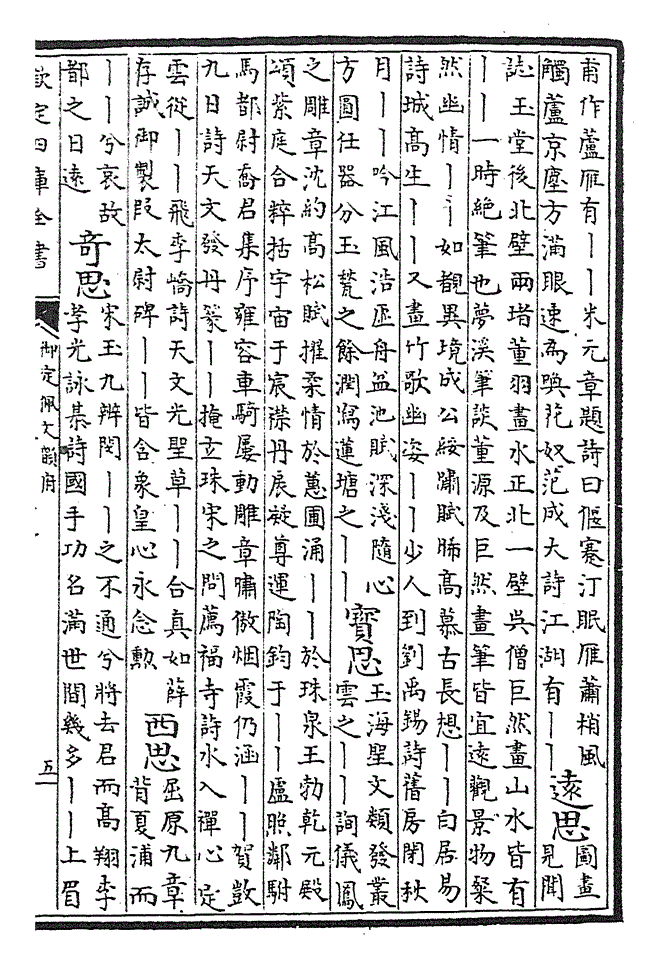 甫作蘆雁有丨丨米元章題詩曰偃蹇汀眠雁蕭梢風
觸蘆京塵方滿眼速為喚花奴范成大詩江湖有丨丨
遠思
圖畫
見聞
誌玉堂後北壁兩堵董羽畫水正北一壁吳僧巨然畫山水皆有
丨丨一時絕筆也夢溪筆談董源及巨然畫筆皆宜遠觀景物粲
然幽情丨丨如覩異境成公綏嘯賦晞高慕古長想丨丨白居易
詩城高生丨丨又畫竹歌幽姿丨丨少人到劉禹錫詩舊房閉秋
月丨丨吟江風浩匝舟盆池賦深淺隨心
方圓任器分玉甃之餘潤寫蓮塘之丨丨
寶思
玉海聖文類發叢
雲之丨丨詢儀鳳
之雕章沈約高松賦擢柔情於蕙圃涌丨丨於珠泉王勃乾元殿
頌紫庭合粹括宇宙于宸襟丹扆凝尊運陶鈞于丨丨盧照鄰駙
馬都尉喬君集序雍容車騎屢動雕章嘯傲烟霞仍涵丨丨賀敳
九日詩天文發丹篆丨丨掩玄珠宋之問薦福寺詩水入禪心定
雲從丨丨飛李嶠詩天文光聖草丨丨合真如薛
存誠御製段太尉碑丨丨皆含象皇心永念勲
西思
屈原九章
背夏浦而
丨丨兮哀故
都之日遠
奇思
宋玉九辨閔丨丨之不通兮將去君而高翔李
孝光詠棊詩國手功名滿世間幾多丨丨上眉
欽定四庫全書
御定佩文韻府
五